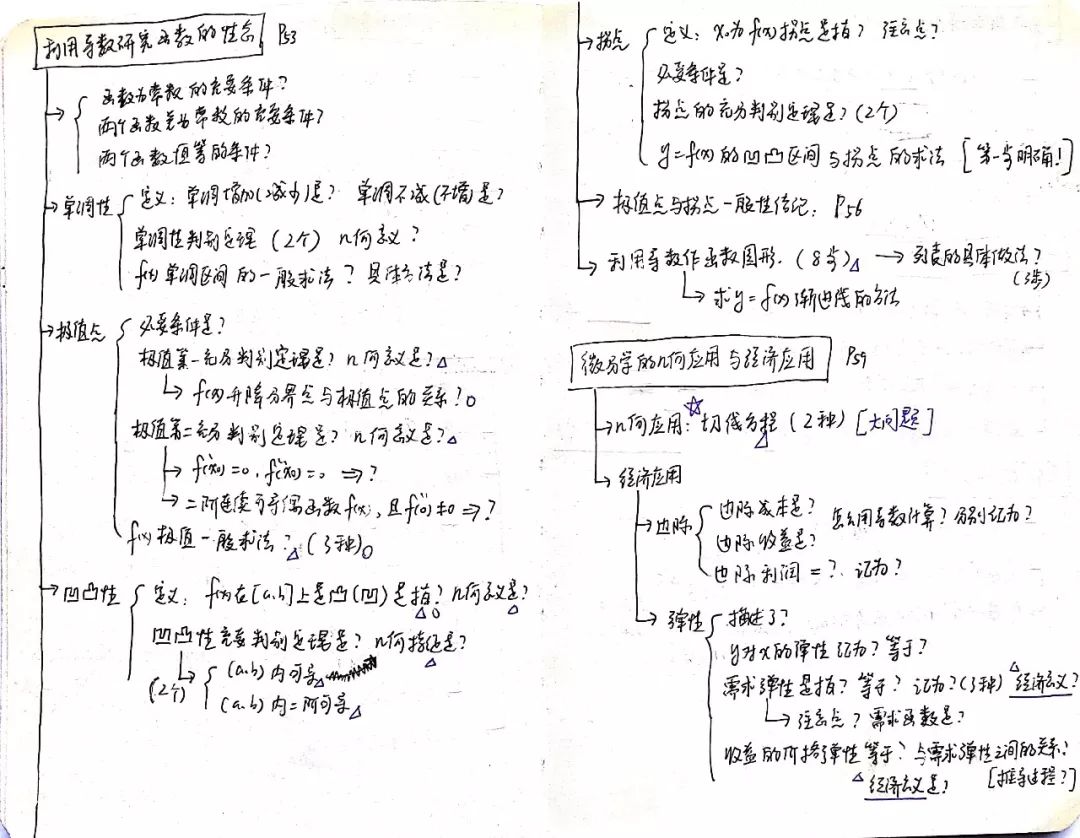 利用导数研究函数的性态 P53
函数为常数的充要条件?
两个函数差为常数的充要条件?
两个函数恒等的条件?
→单调性 定义: 单调增加(减少)是? 单调不减(不增)是?
单调性判别定理 (2个) 几何意义?
f(x)单调区间的一般求法? 具体方法是?
→极值点 必要条件是?
极值第一充分判别定理是? 几何意义是?△
↳ f(x)升降分界点与极值点的关系?○
极值第二充分判别定理是? 几何意义是?△
→ f'(x₀)=0, f''(x₀)=0 ⇒?
→ 二阶连续可导偶函数f(x), 且f''(0)≠0 ⇒?
f(x)极值一般求法?△ (3种)○
→凹凸性 定义: f(x)在[a,b]上是凸(凹)是指?△○ 几何意义是?△
凹凸性充要判别定理是? 几何特征是?△
(2个) (a,b)内可导△
(a,b)内二阶可导△
→拐点 定义: x₀为f(x)拐点是指? 注意点?
必要条件是?
拐点的充分判别定理是? (2个)
y=f(x)的凹凸区间与拐点的求法 [第一步明确!]
→极值点与拐点一般性结论: P56
→利用导数作函数图形. (8步)△ → 列表的具体做法?
(3步)
↳ 求y=f(x)渐近线的方法
微分学的几何应用与经济应用 P59
→几何应用:☆切线方程△ (2种) [大问题]
→经济应用
→边际 边际成本是? 怎么用导数计算? 分别记为?
边际收益是?
边际利润=? 记为?
→弹性 描述了?
y对x的弹性记为? 等于?
需求弹性是指? 等于? 记为?(3种) △经济意义?
↳ 注意点? 需求函数是?
收益的价格弹性等于? 与需求弹性之间的关系?
△经济意义是? [推导过程?]